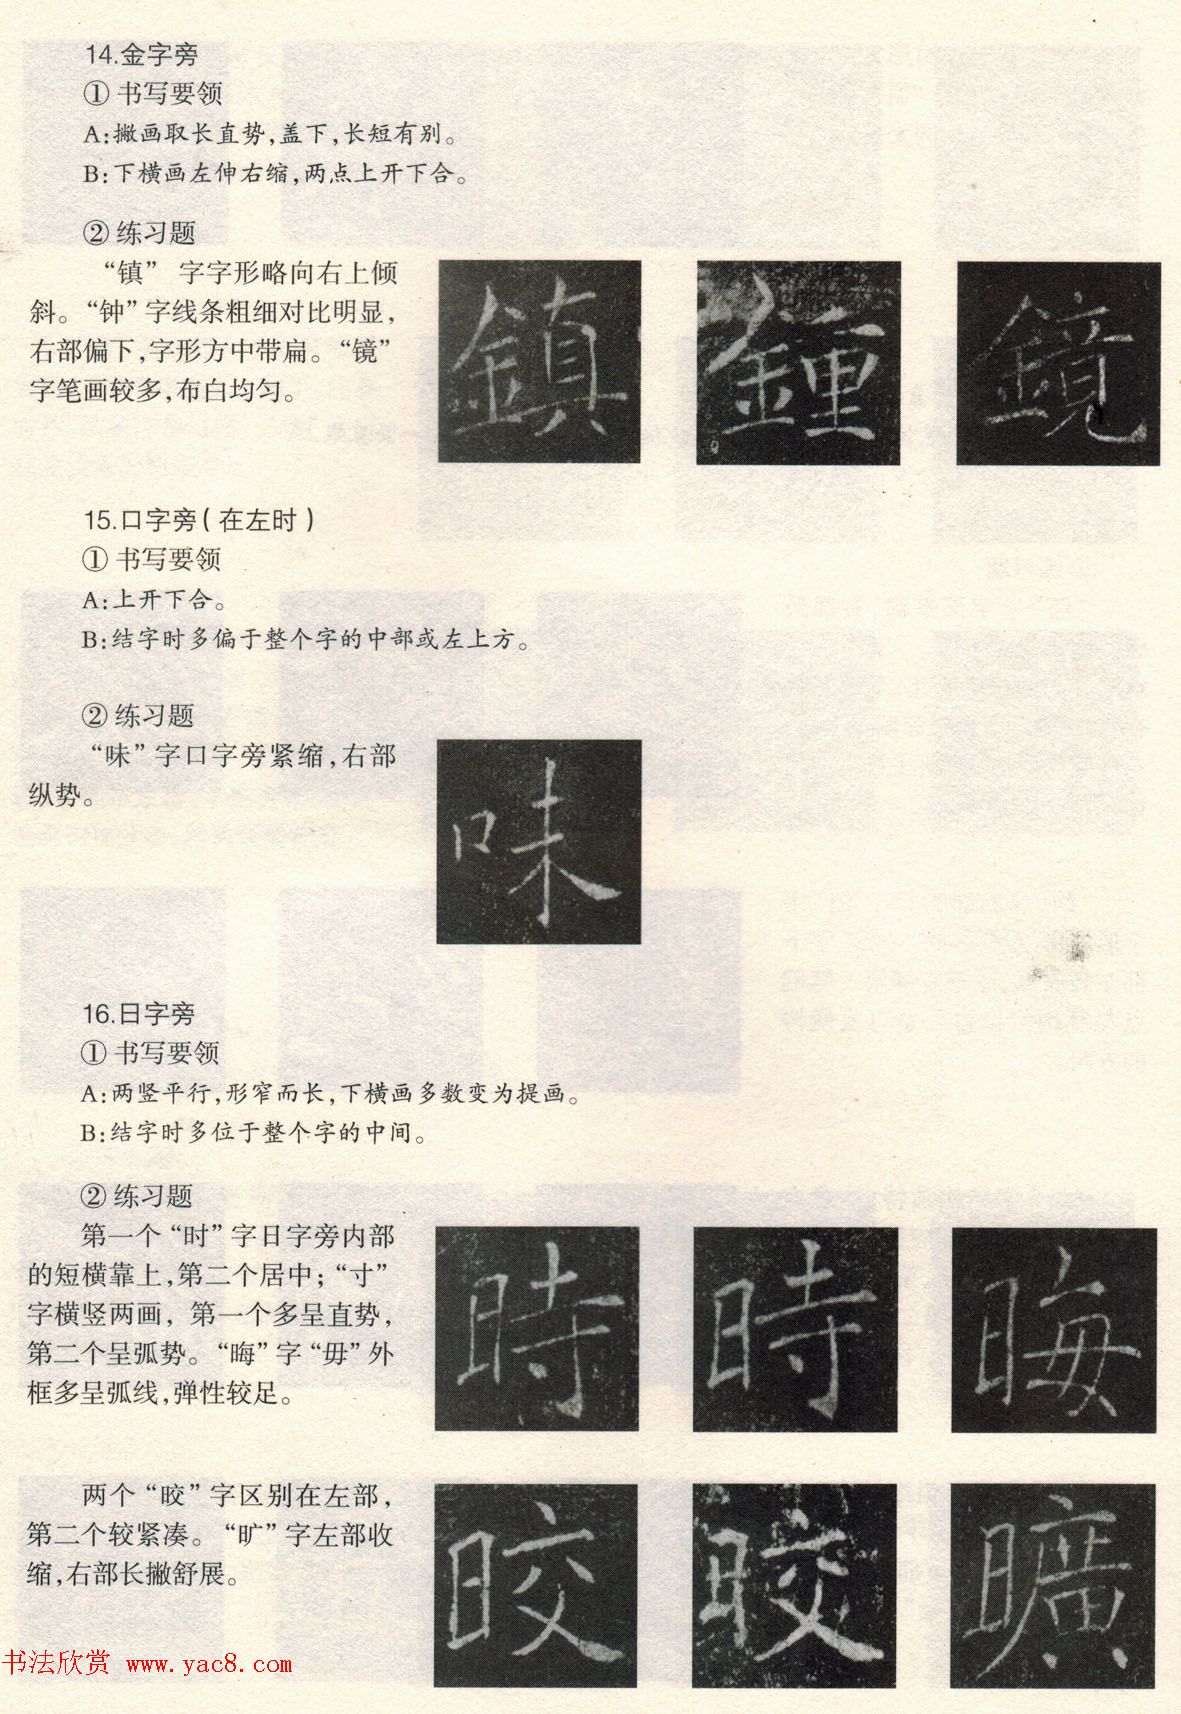 14.金字旁
① 书写要领
A:撇画取长直势,盖下,长短有别。
B:下横画左伸右缩,两点上开下合。
② 练习题
“镇” 字字形略向右上倾
斜。“钟”字线条粗细对比明显,
右部偏下,字形方中带扁。“镜”
字笔画较多,布白均匀。
鎮 鍾 鏡
15.口字旁(在左时)
① 书写要领
A:上开下合。
B:结字时多偏于整个字的中部或左上方。
② 练习题
“味”字口字旁紧缩,右部
纵势。
味
16.日字旁
① 书写要领
A:两竖平行,形窄而长,下横画多数变为提画。
B:结字时多位于整个字的中间。
② 练习题
第一个“时”字日字旁内部
的短横靠上,第二个居中;“寸”
字横竖两画, 第一个多呈直势,
第二个呈弧势。“晦”字“毋”外
框多呈弧线,弹性较足。
時 時 晦
两个“晈”字区别在左部,
第二个较紧凑。“旷”字左部收
缩,右部长撇舒展。
晈 晈 曠
书法欣赏 www.yac8.com